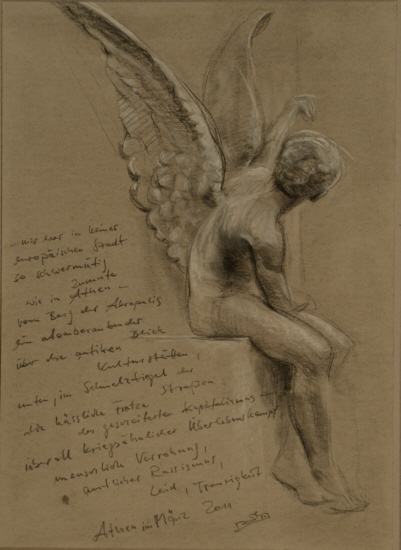 ... mir war in keiner
europäischen Stadt
so schwermütig
zumute
wie in Athen –
vom Berg der Akropolis
ein atemberaubender
Blick
über die antiken
Kulturstätten,
unten, im Schmelztiegel der
Straßen
die hässliche Fratze
des gescheiterten Kapitalismus –
überall kriegsähnlicher Überlebenskampf
menschliche Verrohung,
amtlicher Rassismus,
Leid, Traurigkeit
Athen im März 2011